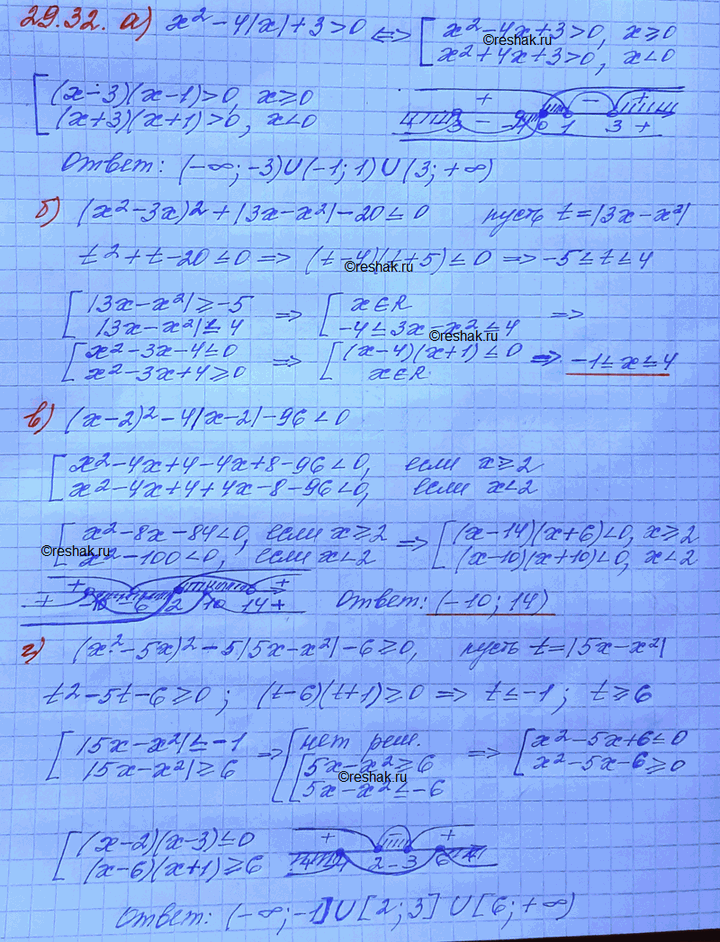 29.32. а) x²-4|x|+3>0 <=> [ x²-4x+3>0, x≥0
x²+4x+3>0, x<0
©reshak.ru
[ (x-3)(x-1)>0, x≥0
(x+3)(x+1)>0, x<0
+ - +
-3 - -1 0 1 3 +
Ответ: (-∞; -3)∪(-1; 1)∪(3; +∞)
б) (x²-3x)²+|3x-x²|-20≤0 пусть t=|3x-x²|
t²+t-20≤0 => (t-4)(t+5)≤0 => -5≤t≤4
©reshak.ru
[ |3x-x²|≥-5 => [ x∈R =>
|3x-x²|≤4 -4≤3x-x²≤4
©reshak.ru
[ x²-3x-4≤0 => [ (x-4)(x+1)≤0 => -1≤x≤4
x²-3x+4≥0 x∈R
в) (x-2)²-4|x-2|-96<0
[ x²-4x+4-4x+8-96<0, если x≥2
x²-4x+4+4x-8-96<0, если x<2
[ x²-8x-84<0, если x≥2 => [ (x-14)(x+6)<0, x≥2
x²-100<0, если x<2 (x-10)(x+10)<0, x<2
©reshak.ru
+ +
+ -10 -6 2 10 14 +
Ответ: (-10; 14)
г) (x²-5x)²-5|5x-x²|-6≥0, пусть t=|5x-x²|
t²-5t-6≥0; (t-6)(t+1)≥0 => t≤-1; t≥6
[ |5x-x²|≤-1 => [ нет реш. => [ x²-5x+6≤0
|5x-x²|≥6 [ 5x-x²≥6 x²-5x-6≥0
5x-x²≤-6
©reshak.ru
[ (x-2)(x-3)≤0
(x-6)(x+1)≥6
+ - +
-1 2 - 3 6
Ответ: (-∞; -1]∪[2; 3]∪[6; +∞)